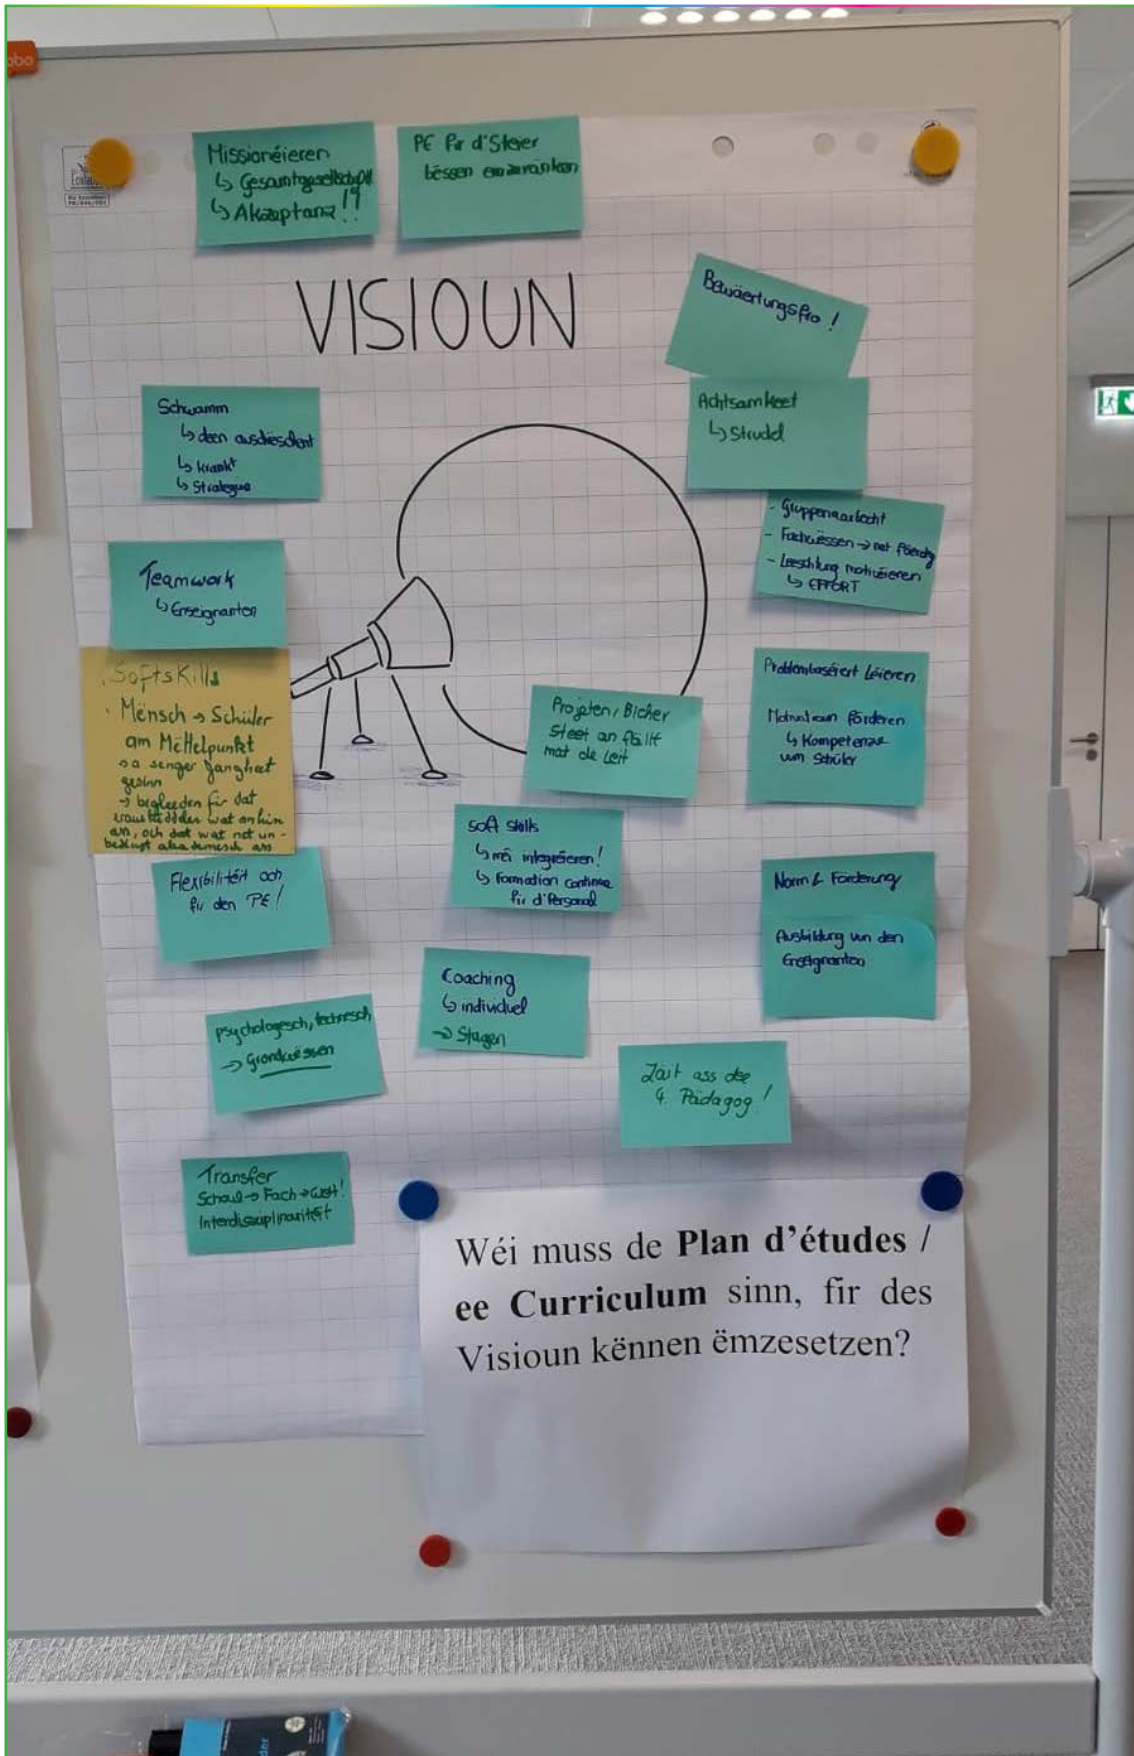 Missionéieren
↳ Gesamtgesellschaft
↳ Akzeptanz!?
PE fir d'Steier
bëssen
VISIOUN
Bewäertungsfro!
Schwamm
↳ deen
↳ krankt
↳ Strategie
Achtsamkeet
↳ Strudel
- Gruppenaarbecht
- Fachwëssen → net
- motivéieren
↳ EFFORT
Teamwork
↳ Enseignanten
Softskills
Mënsch → Schüler
am Mëttelpunkt
a senger
gesinn
→ begleeden fir dat
wat an him
an, och dat wat net un-
bedingt akademesch ass
Problembaséiert Léieren
Motivatioun förderen
↳ Kompetenze
vum Schüler
Projeten, Bicher
steet an fällt
mat de Leit
soft skills
↳ méi integréieren!
↳ Formation continue
fir d'Personal
Flexibilitéit och
fir den PE!
Norm & Förderung
Ausbildung vun den
Enseignanten
Coaching
↳ individuel
→ Stagen
psychologesch, technesch
→ Grondwëssen
Zäit ass dee
4. Pädagog!
Transfer
Schoul → Fach → Welt!
Interdisziplinaritéit
Wéi muss de Plan d'études /
ee Curriculum sinn, fir des
Visioun kënnen ëmzesetzen?